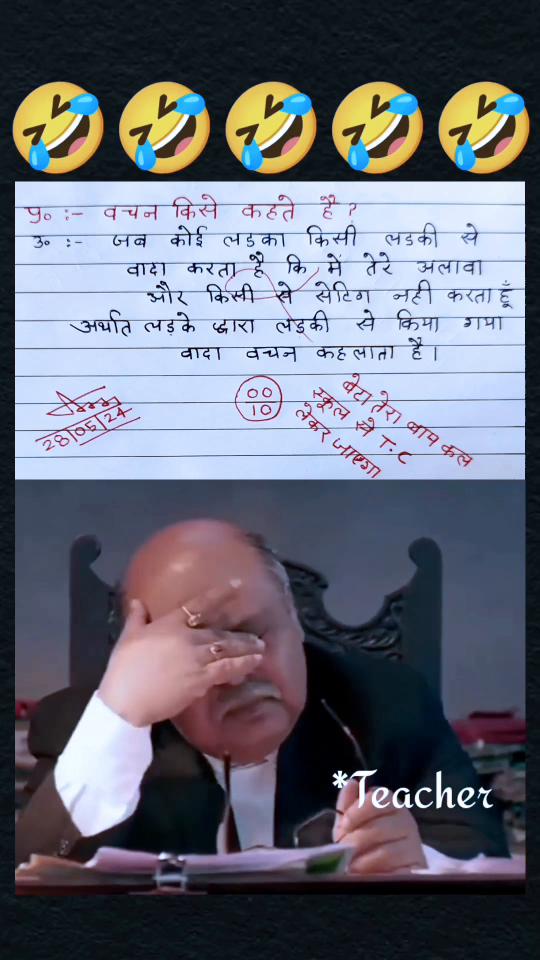 प्र० :- वचन किसे कहते है ?
उ० :- जब कोई लडका किसी लडकी से
वादा करता है कि में तेरे अलावा
और किसी से सेटिंग नही करता हूँ
अर्थात लड़के द्वारा लड़की से किया गया
वादा वचन कहलाता है।
28/05/24
00
10
बेटा तेरा बाप कल
स्कूल से T.C
लेकर जाएगा
*Teacher